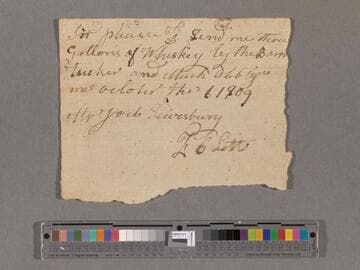 Sir please to Send me three
Gallons of Whiskey by the Barer
Tucker and Much Oblige
me october the 6 1809
Mr Jacob